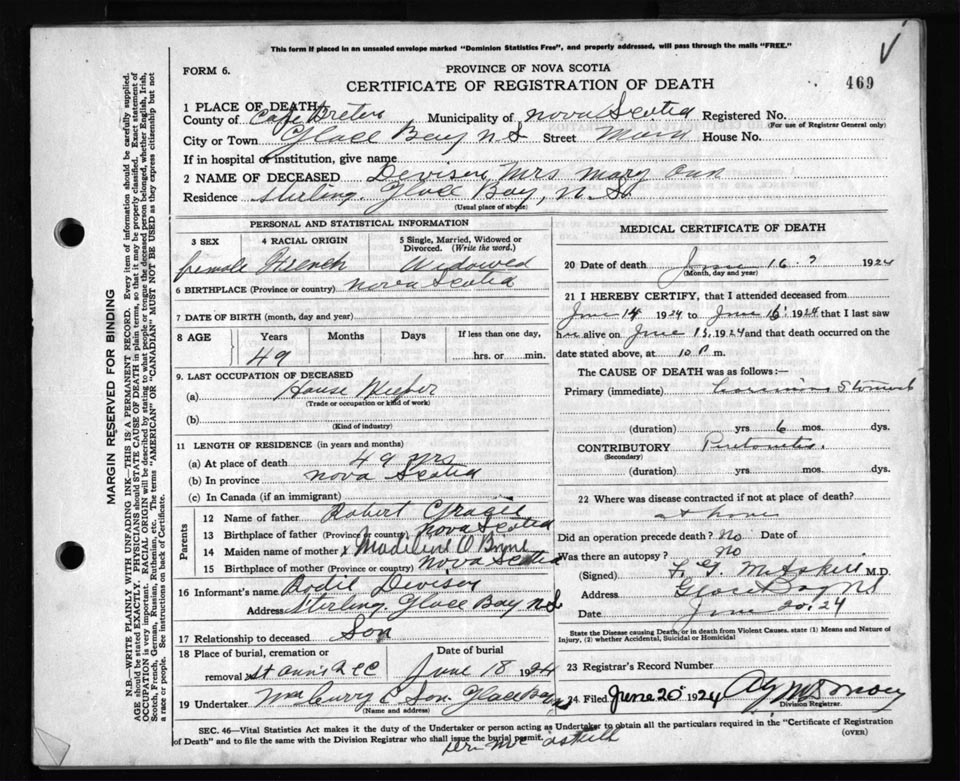 This form if placed in an unsealed envelope marked "Dominion Statistics Free", and properly addressed, will pass through the mails "FREE."
FORM 6.
PROVINCE OF NOVA SCOTIA
CERTIFICATE OF REGISTRATION OF DEATH
469
1 PLACE OF DEATH
County of Cape Breton Municipality of Nova Scotia Registered No.
(For use of Registrar General only)
City or Town Glace Bay N.S Street Main House No.
If in hospital or institution, give name
2 NAME OF DECEASED Devison Mrs Mary Ann
Residence Sterling. Glace Bay, N.S.
(Usual place of abode)
PERSONAL AND STATISTICAL INFORMATION
3 SEX 4 RACIAL ORIGIN 5 Single, Married, Widowed or Divorced. (Write the word.)
female French Widowed
6 BIRTHPLACE (Province or country) Nova Scotia
7 DATE OF BIRTH (month, day and year)
8 AGE Years Months Days If less than one day,
49 hrs. or min.
9. LAST OCCUPATION OF DECEASED
(a) House
(Trade or occupation or kind of work)
(b)
(Kind of industry)
11 LENGTH OF RESIDENCE (in years and months)
(a) At place of death 49 yrs
(b) In province Nova Scotia
(c) In Canada (if an immigrant)
Parents
12 Name of father Robert
13 Birthplace of father (Province or country) Nova Scotia
14 Maiden name of mother x Madeline O
15 Birthplace of mother (Province or country) Nova Scotia
16 Informant's name
Address Sterling, Glace Bay N S
17 Relationship to deceased Son
18 Place of burial, cremation or removal Date of burial
St Ann's June 18 1924
19 Undertaker Curry & Son Glace Bay
(Name and address)
MEDICAL CERTIFICATE OF DEATH
20 Date of death June 16 1924
(Month, day and year)
21 I HEREBY CERTIFY, that I attended deceased from
June 14 1924 to June 16 1924 that I last saw
her alive on June 15, 1924 and that death occurred on
date stated above, at 10 P m.
The CAUSE OF DEATH was as follows:—
Primary (immediate) Stomach
(duration) yrs 6 mos. dys.
CONTRIBUTORY
(Secondary)
(duration) yrs. mos. dys.
22 Where was disease contracted if not at place of death?
at home
Did an operation precede death? No Date of
Was there an autopsy? no
(Signed) M.D.
Address Glace Bay NS
Date June 20. 24
State the Disease causing Death, or in death from Violent Causes, state (1) Means and Nature of Injury, (2) whether Accidental, Suicidal or Homicidal
23 Registrar's Record Number
24 Filed June 20 1924
Division Registrar.
SEC. 46—Vital Statistics Act makes it the duty of the Undertaker or person acting as Undertaker to obtain all the particulars required in the "Certificate of Registration
of Death" and to file the same with the Division Registrar who shall issue the burial permit.
(OVER)
MARGIN RESERVED FOR BINDING
N.B.—WRITE PLAINLY WITH UNFADING INK—THIS IS A PERMANENT RECORD. Every item of information should be carefully supplied.
AGE should be stated EXACTLY. PHYSICIANS should STATE CAUSE OF DEATH in plain terms, so that it may be properly classified. Exact statement of
OCCUPATION is very important. RACIAL ORIGIN will be described by stating to what people or tongue the deceased person belonged, whether English, Irish,
Scotch, French, German, Russian, Ruthenian, etc. The terms "AMERICAN" or "CANADIAN" MUST NOT BE USED as they express citizenship but not
a race or people. See instructions on back of Certificate.